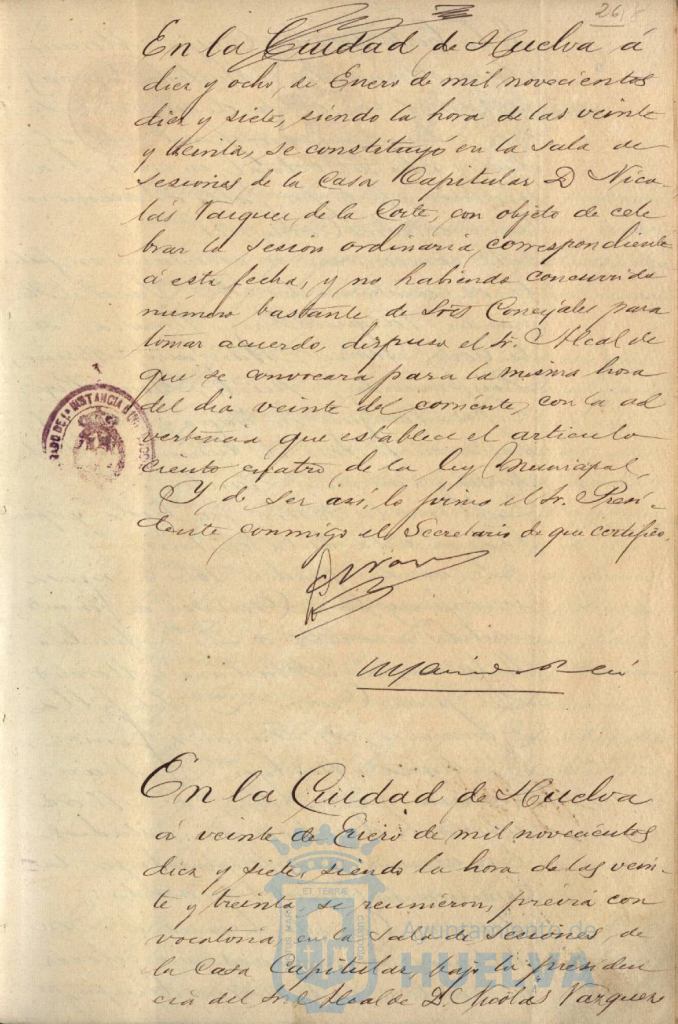 26
En la Ciudad de Huelva á
diez y ocho, de Enero de mil novecientos
diez y siete, siendo la hora de las veinte
y treinta, se constituyó en la sala de
sesiones de la Casa Capitular D Nico-
lás Vazquez de la Corte, con objeto de cele
brar la sesión ordinaria correspondiente
á esta fecha, y no habiendo concurrido
número bastante de Sres Concejales para
tomar acuerdo, dispuso el Sr. Alcalde
que se convocara para la misma hora
del dia veinte del corriente, con la ad
vertencia que establece el articulo
ciento cuatro de la ley Municipal,
Y de ser así, lo firma el Sr. Presi-
dente conmigo el Secretario de que certifico.
INSTANCIA
En la Ciudad de Huelva
á veinte de Enero de mil novecientos
diez y siete, siendo la hora de las vein-
te y treinta, se reunieron, prévia con
vocatoria, en la sala de Sesiones, de
la Casa Capitular, bajo la presiden
cia del Sr. Alcalde D. Nicolás Vazquez
Ayuntamiento de
HUELVA